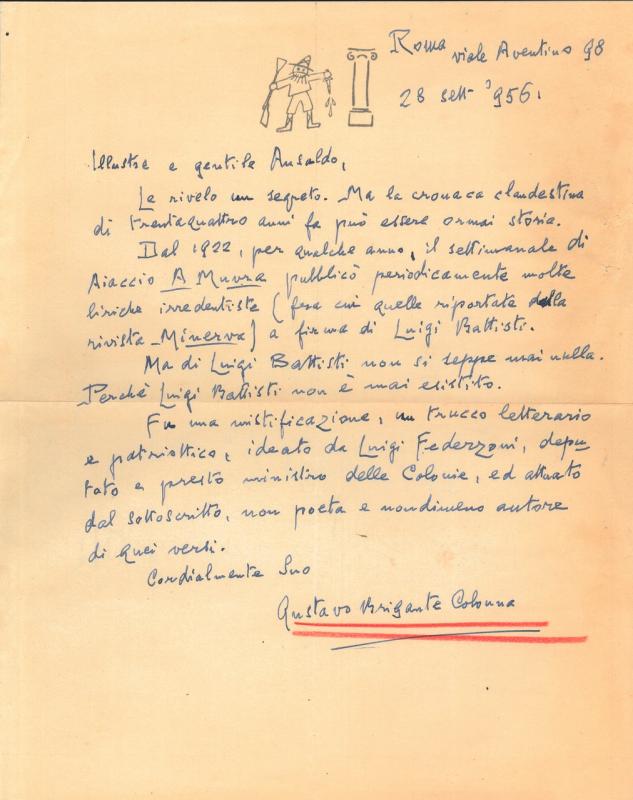 Roma viale Aventino 98
28 sett. '956.
Illustre e gentile Ansaldo,
Le rivelo un segreto. Ma la cronaca clandestina
di trentaquattro anni fa può essere ormai storia.
Dal 1922, per qualche anno, il settimanale di
Aiaccio A Muvra pubblicò periodicamente molte
liriche irredentiste (fra cui quelle riportate dalla
rivista Minerva) a firma di Luigi Battisti.
Ma di Luigi Battisti non si seppe mai nulla.
Perchè Luigi Battisti non è mai esistito.
Fu una mistificazione, un trucco letterario
e patriottico, ideato da Luigi Federzoni, depu-
tato e presto ministro delle Colonie, ed attuato
dal sottoscritto, non poeta e nondimeno autore
di quei versi.
Cordialmente Suo
Gustavo Brigante Colonna